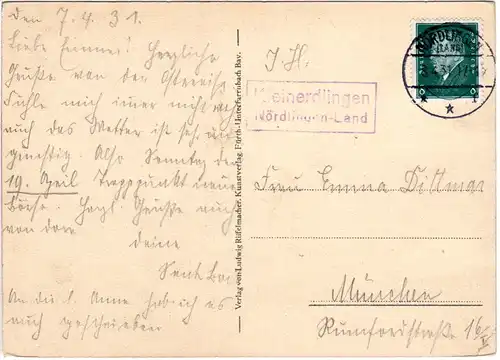 Den 7.4.31.
Liebe Emmer! Herzliche
Grüße von der
Fühle mich immer nicht
auch das Wetter ist sehr un
günstig. Also Sonntag den
19. April Treffpunkt neue
Börse. Herzl. Grüße auch
von Dore
deine
An die l. Anne hab ich es
auch geschrieben
Verlag von Ludwig Riffelmacher, Kunstverlag, Fürth-Unterfarrnbach Bay.
I. H.
Kleinerdlingen
Nördlingen-Land
NÖRDLINGEN
(LAND)
Frau Emma Dittmar
München
Rumfordstraße 16